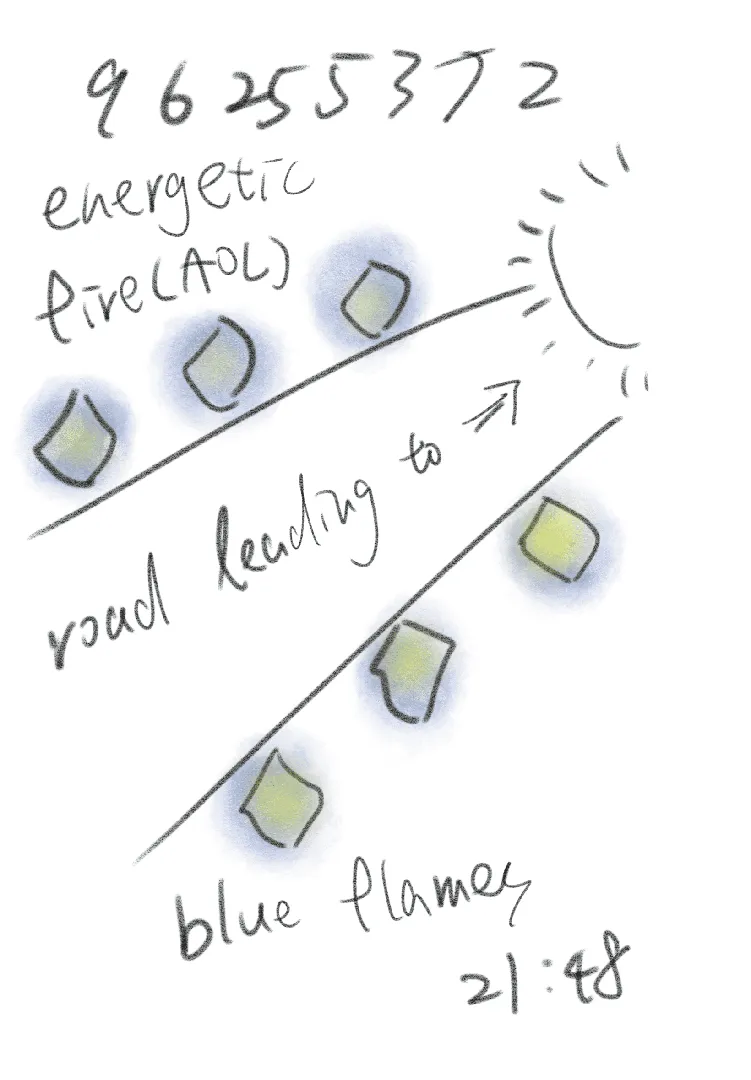 96255372
energetic
fire(AOL)
road leading to
blue flames
21:48